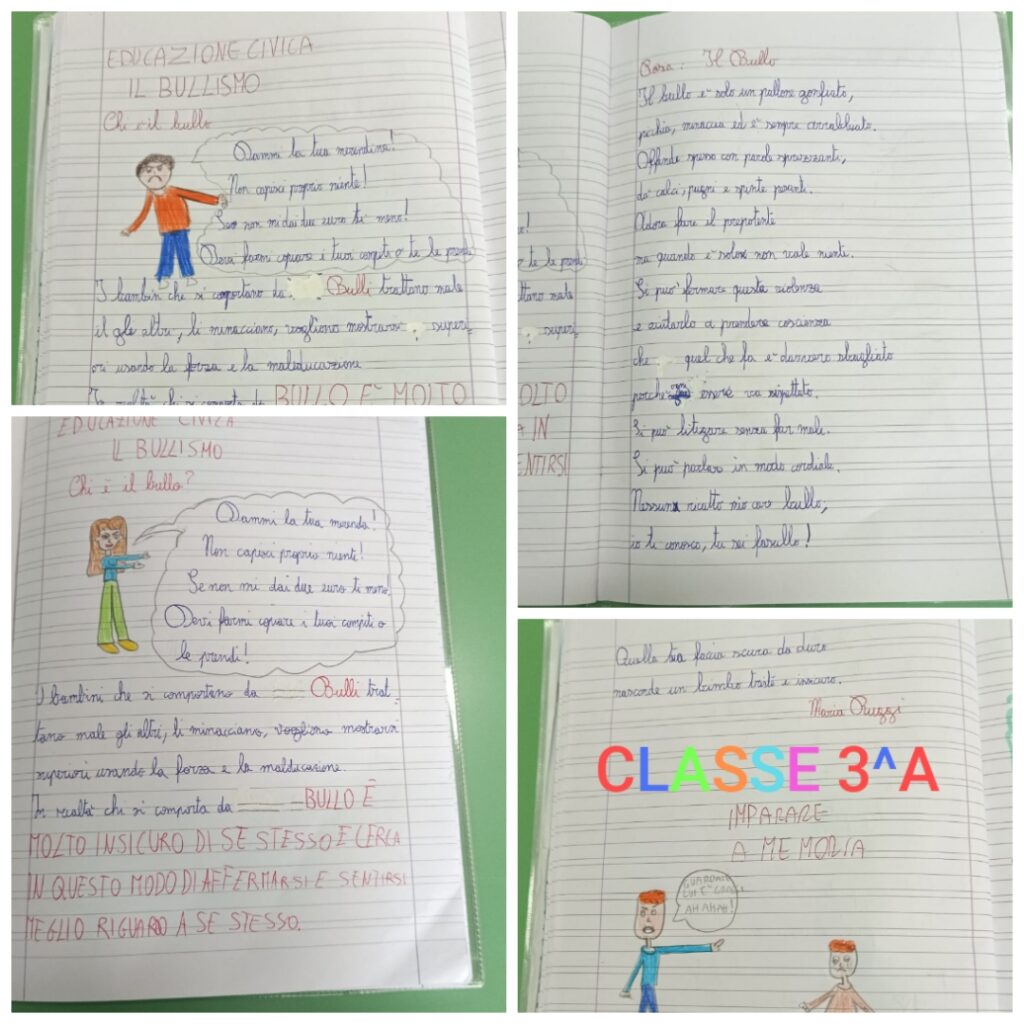 EDUCAZIONE CIVICA
IL BULLISMO
Chi è il bullo
Dammi la tua merendina!
Non capisci proprio niente!
Se non mi dai due euro ti meno!
Devi farmi copiare i tuoi compiti o te le prendi
I bambin che si comportano da Bulli trattano male
il gle altri, li minacciano, vogliono mostrarsi superi-
ori usando la forza e la maleducazione
In realtà chi si comporta da BULLO E' MOLTO
EDUCAZIONE CIVICA
IL BULLISMO
Chi è il bullo?
Dammi la tua merenda!
Non capisci proprio nienti!
Se non mi dai due euro ti meno
Devi farmi copiare i tuoi compiti o
le prendi!
I bambini che si comportano da Bulli trat-
tano male gli altri, li minacciano, vogliono mostrarsi
superiori usando la forza e la malducazione.
In realtà chi si comporta da BULLO È
MOLTO INSICURO DI SE STESSO E CERCA
IN QUESTO MODO DI AFFERMARSI E SENTIRSI
MEGLIO RIGUARDO A SE STESSO.
te le prendi
ttano male
superi-
OLTO
A IN
ENTIRSI
Il Bullo
Il bullo e' solo un pallone gonfiato,
picchia, minaccia ed e' sempre arrabbiato.
Offende spesso con parole sprezzanti,
da' calci, pugni e spinte pesanti.
Adora fare il prepotente
ma quando e' solo non vale niente.
Si puo' fermare questa violenza
e aiutarlo a prendere coscienza
che quel che fa e' davvero sbagliato
perche' ogni essere va rispettato.
Si puo' litigare senza far male.
Si puo' parlar in modo cordiale.
Nessun ricatto mio caro bullo,
io ti conosco, tu sei fasullo!
Quella tua faccia scura da duro
nasconde un bimbo triste e insicuro.
Maria Ruggi
CLASSE 3^A
IMPARARE
A MEMORIA
GUARDATE
LUI E'
AH AHAH!